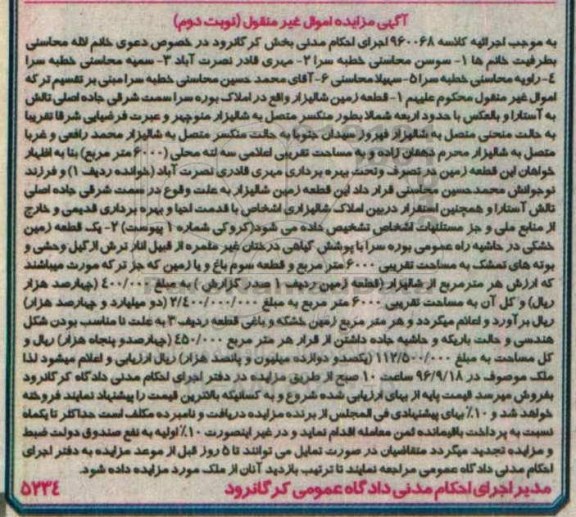 آگهی مزایده اموال غیر منقول (نوبت دوم)
به موجب اجرائیه کلاسه ۹۶۰۰۶۸ اجرای احکام مدنی بخش کرگانرود در خصوص دعوی خانم لاله محاسنی
بطرفیت خانم ها ۱- سوسن محاسنی خطبه سرا ۲- مهری قادر نصرت آباد ۳- سمیه محاسنی خطبه سرا
۴- راویه محاسنی خطبه سرا ۵- سهیلا محاسنی ۶- آقای محمد حسین محاسنی خطبه سرا مبنی بر تقسیم ترکه
اموال غیر منقول محکوم علیهم ۱- قطعه زمین شالیزار واقع در املاک بوره سرا سمت شرقی جاده اصلی تالش
به آستارا و بالعکس با حدود اربعه شمالا بطور منکسر متصل به شالیزار منوچهر و عبرت فرضیایی شرقا تقریبا
به حالت منحنی متصل به شالیزار فهروز سیدان جنوبا به حالت منکسر متصل به شالیزار محمد رافعی و غربا
متصل به شالیزار محرم دهقان زاده و به مساحت تقریبی اعلامی سه لته محلی (۶۰۰۰ متر مربع) بنا به اظهار
خواهان این قطعه زمین در تصرف وتحت بهره برداری مهری قادری نصرت آباد (خوانده ردیف ۱) و فرزند
نوجوانش محمدحسین محاسنی قرار داد این قطعه زمین شالیزار به علت وقوع در سمت شرقی جاده اصلی
تالش آستارا و همچنین استقرار دربین املاک شالیزاری اشخاص با قدمت احیا و بهره برداری قدیمی و خارج
از منابع ملی و جز مستثنیات اشخاص تشخیص داده می شود(کروکی شماره ۱ پیوست) ۲- یک قطعه زمین
خشکی در حاشیه راه عمومی بوره سرا با پوشش گیاهی درختان غیر مثمره از قبیل انار ترش ازگیل وحشی و
بوته های تمشک به مساحت تقریبی ۶۰۰۰ متر مربع و قطعه سوم باغ و یا زمین که جز ترکه مورث میباشند
که ارزش هر مترمربع از شالیزار (قطعه زمین ردیف ۱ صدر گزارش) به مبلغ ۴۰۰/۰۰۰ (چهارصد هزار
ریال) و کل آن به مساحت تقریبی ۶۰۰۰ متر مربع به مبلغ ۲/۴۰۰/۰۰۰/۰۰۰ (دو میلیارد و چهارصد هزار)
ریال برآورد و اعلام میگردد و هر متر مربع زمین خشکه و باغی قطعه ردیف ۳ به علت نا مناسب بودن شکل
هندسی و حالت باریکه و حاشیه جاده داشتن از قرار هر متر مربع ۴۵۰/۰۰۰ (چهارصدو پنجاه هزار) ریال و
کل مساحت به مبلغ ۱۱۲/۵۰۰/۰۰۰ (یکصدو دوازده میلیون و پانصد هزار) ریال ارزیابی و اعلام میشود لذا
ملک موصوف در ۹۶/۹/۱۸ ساعت ۱۰ صبح از طریق مزایده در دفتر اجرای احکام مدنی دادگاه کرگانرود
بفروش میرسد قیمت پایه از بهای ارزیابی شده شروع و به کسانیکه بالاترین قیمت را پیشنهاد نمایند فروخته
خواهد شد و ۱۰٪ بهای پیشنهادی فی المجلس از برنده مزایده دریافت و نامبرده مکلف است حداکثر تا یکماه
نسبت به پرداخت باقیمانده ثمن معامله اقدام نماید و در غیر اینصورت ۱۰٪ اولیه به نفع صندوق دولت ضبط
و مزایده تجدید میگردد متقاضیان در صورت تمایل می توانند تا ۵ روز قبل از موعد مزایده به دفتر اجرای
احکام مدنی دادگاه عمومی مراجعه نمایند تا ترتیب بازدید آنان از ملک مورد مزایده داده شود.
مدیر اجرای احکام مدنی دادگاه عمومی کرگانرود ۵۲۳۴